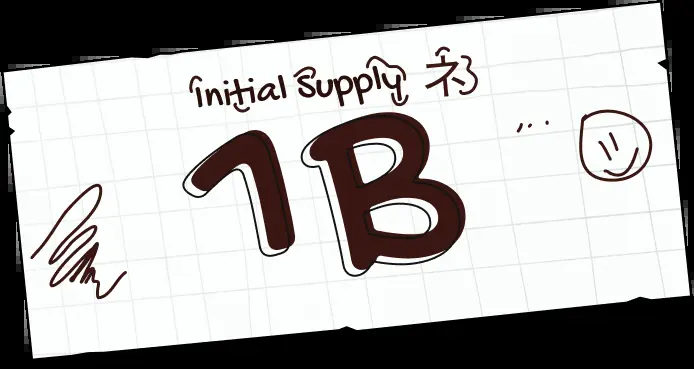 Initial Supply
1B